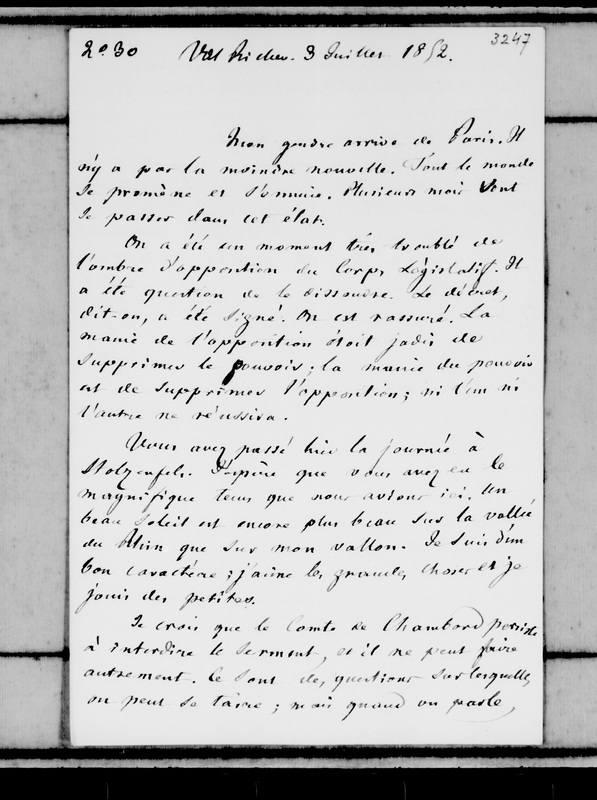 3247
2º 30 Val Richer. 3 Juillet 1852.
Mon gendre arrive de Paris. Il
n'y a pas la moindre nouvelle. Tout le monde
se promène et s'ennuie. Plusieurs mois vont
se passer dans cet état.
On a été un moment très troublé de
l'ombre d'opposition du Corps Législatif. Il
a été question de le dissoudre. Le décret,
dit-on, a été signé. On est rassuré. La
manie de l'opposition étoit jadis de
supprimer le pouvoir ; la manie du pouvoir
est de supprimer l'opposition ; ni l'un ni
l'autre ne réussira.
Vous avez passé hier la journée à
Stolzenfels. J'espère que vous avez eu le
magnifique tems que nous avions ici. Un
beau soleil est encore plus beau sur la vallée
du Rhin que sur mon vallon. Je suis d'un
bon caractère ; j'aime les grandes choses et je
jouis des petites.
Je crois que le Comte de Chambord persiste
à interdire le serment, et il ne peut faire
autrement. Ce sont des questions sur lesquelles
on peut se taire ; mais quand on parle,